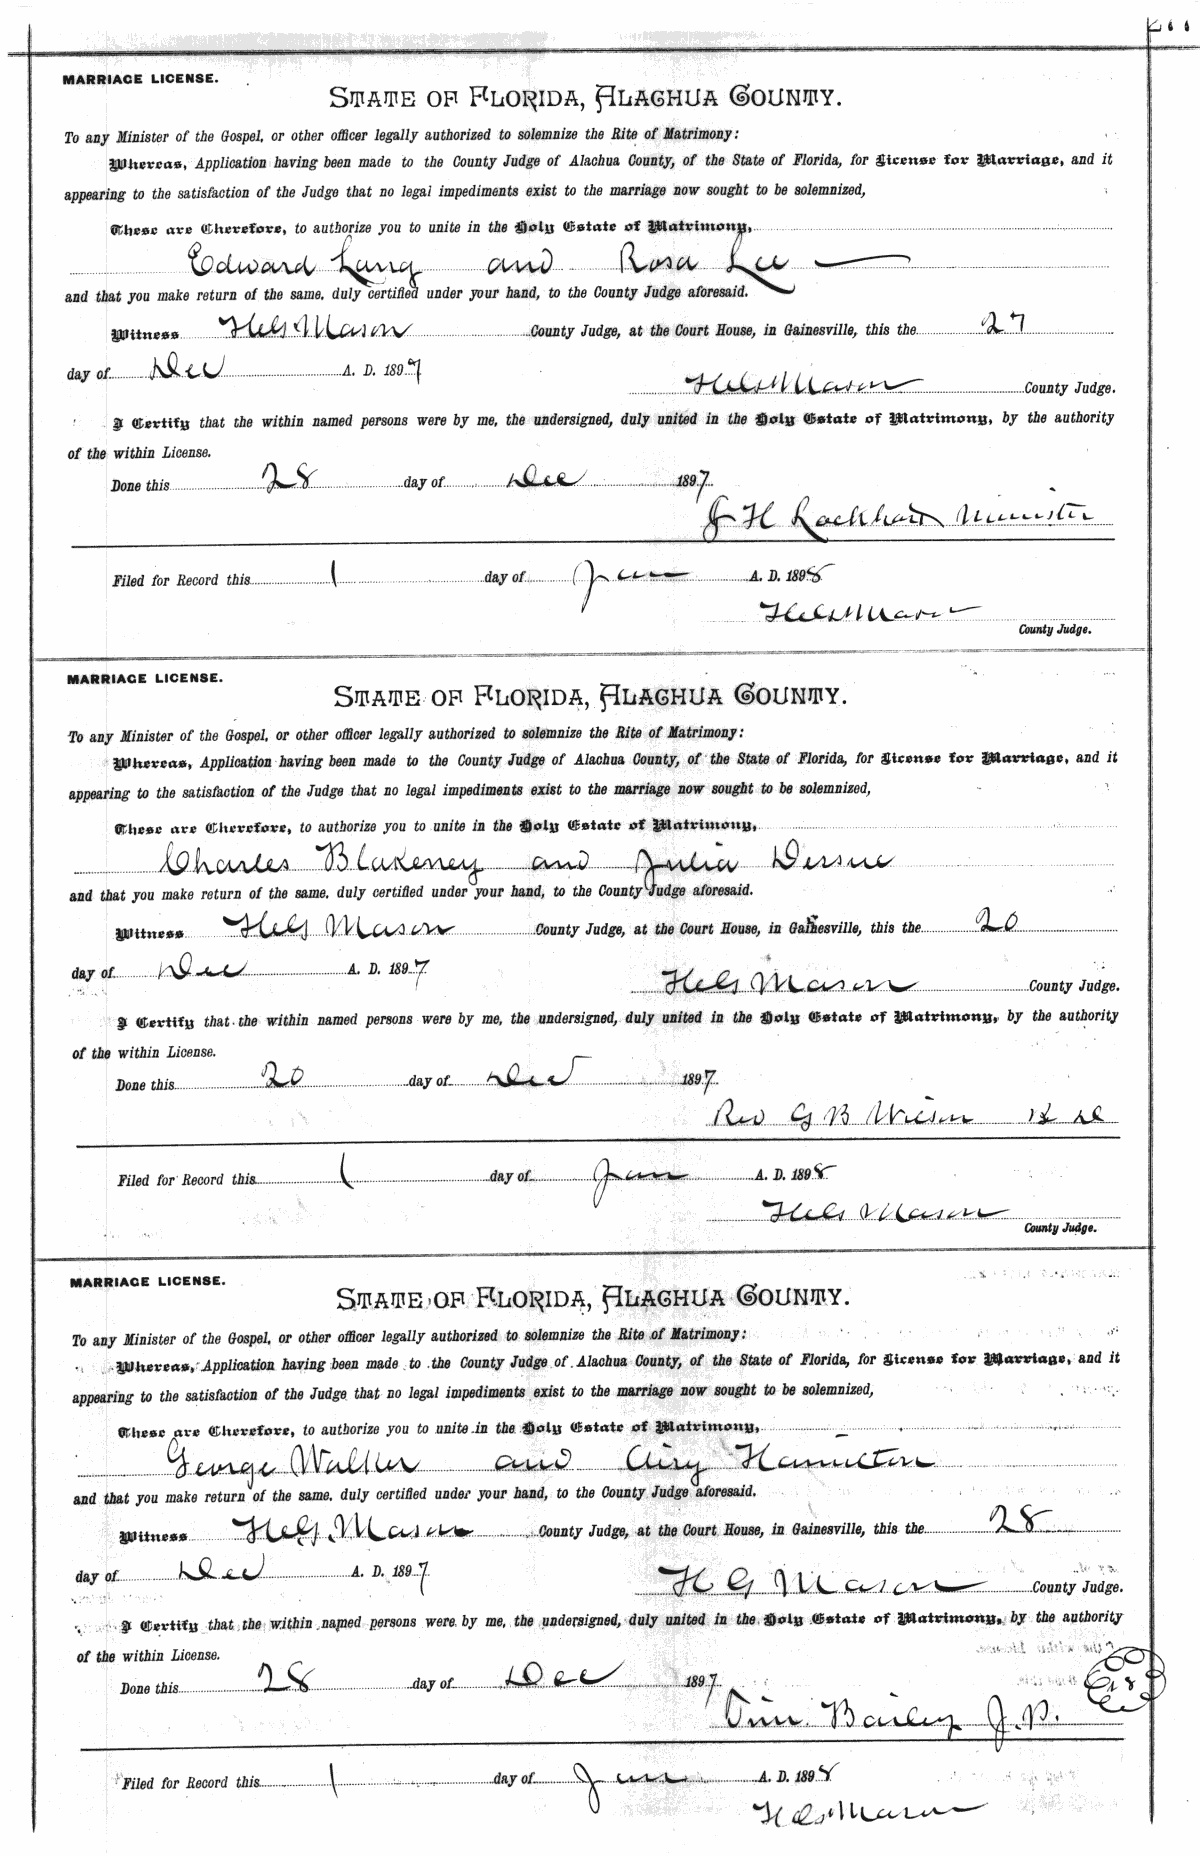 MARRIAGE LICENSE.
STATE OF FLORIDA, ALACHUA COUNTY.
To any Minister of the Gospel, or other officer legally authorized to solemnize the Rite of Matrimony:
Whereas, Application having been made to the County Judge of Alachua County, of the State of Florida, for License for Marriage, and it
appearing to the satisfaction of the Judge that no legal impediments exist to the marriage now sought to be solemnized,
These are Therefore, to authorize you to unite in the Holy Estate of Matrimony,
Edward Lang and Rosa Lee
and that you make return of the same, duly certified under your hand, to the County Judge aforesaid.
Witness H G Mason County Judge, at the Court House, in Gainesville, this the 27
day of Dec A. D. 1897
H G Mason County Judge.
I Certify that the within named persons were by me, the undersigned, duly united in the Holy Estate of Matrimony, by the authority
of the within License.
Done this 28 day of Dec 1897
J H Lockhart Minister
Filed for Record this 1 day of Jan A. D. 1898
H G Mason
County Judge.
MARRIAGE LICENSE.
STATE OF FLORIDA, ALACHUA COUNTY.
To any Minister of the Gospel, or other officer legally authorized to solemnize the Rite of Matrimony:
Whereas, Application having been made to the County Judge of Alachua County, of the State of Florida, for License for Marriage, and it
appearing to the satisfaction of the Judge that no legal impediments exist to the marriage now sought to be solemnized,
These are Therefore, to authorize you to unite in the Holy Estate of Matrimony,
Charles Blakeney and Julia Dessue
and that you make return of the same, duly certified under your hand, to the County Judge aforesaid.
Witness H G Mason County Judge, at the Court House, in Gainesville, this the 20
day of Dec A. D. 1897
H G Mason County Judge.
I Certify that the within named persons were by me, the undersigned, duly united in the Holy Estate of Matrimony, by the authority
of the within License.
Done this 20 day of Dec 1897
Rev G B Wilson
Filed for Record this 1 day of Jan A. D. 1898
H G Mason
County Judge.
MARRIAGE LICENSE.
STATE OF FLORIDA, ALACHUA COUNTY.
To any Minister of the Gospel, or other officer legally authorized to solemnize the Rite of Matrimony:
Whereas, Application having been made to the County Judge of Alachua County, of the State of Florida, for License for Marriage, and it
appearing to the satisfaction of the Judge that no legal impediments exist to the marriage now sought to be solemnized,
These are Therefore, to authorize you to unite in the Holy Estate of Matrimony,
George Walker and Airy Hamilton
and that you make return of the same, duly certified under your hand, to the County Judge aforesaid.
Witness H G Mason County Judge, at the Court House, in Gainesville, this the 28
day of Dec A. D. 1897
H G Mason County Judge.
I Certify that the within named persons were by me, the undersigned, duly united in the Holy Estate of Matrimony, by the authority
of the within License.
Done this 28 day of Dec 1897
Bailey J.P.
Filed for Record this 1 day of Jan A. D. 1898
H G Mason